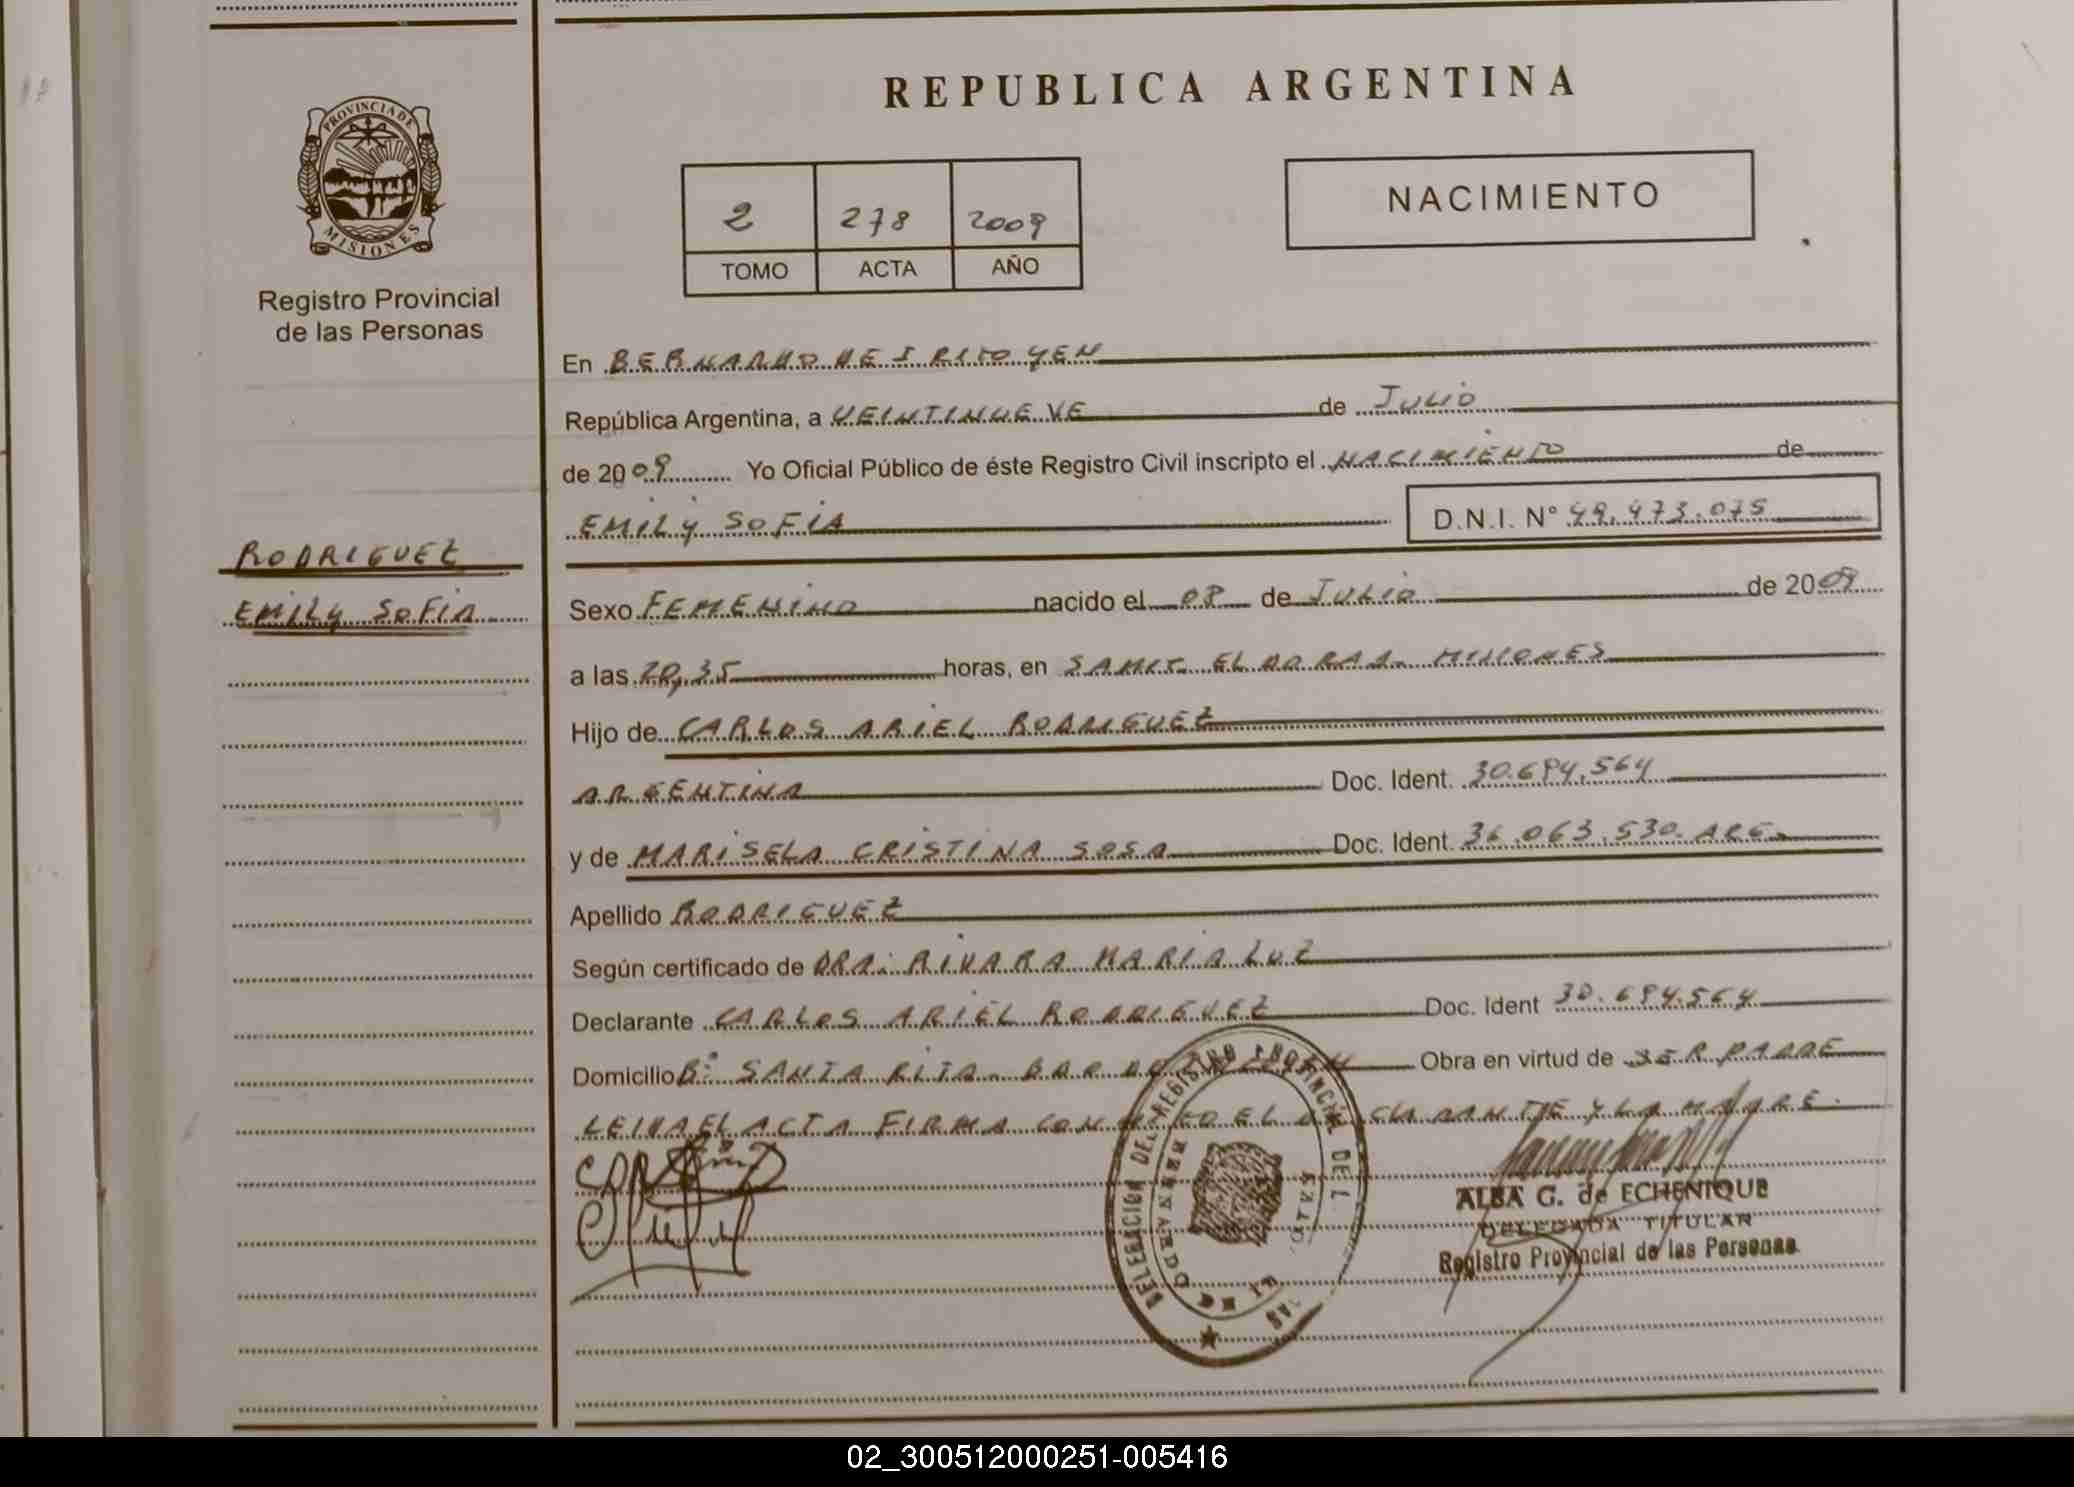 REPUBLICA ARGENTINA
PROVINCIA DE
MISIONES
Registro Provincial
de las Personas
2 278 2009
TOMO ACTA AÑO
NACIMIENTO
En BERNARDO DE IRIGOYEN
República Argentina, a VEINTINUEVE de JULIO
de 2009 Yo Oficial Público de éste Registro Civil inscripto el NACIMIENTO de
EMILY SOFIA D.N.I. N° 49.473.075
RODRIGUEZ
EMILY SOFIA
Sexo FEMENINO nacido el 08 de JULIO de 2009
a las 20,35 horas, en SAMIC ELDORADO MISIONES
Hijo de CARLOS ARIEL RODRIGUEZ
ARGENTINA Doc. Ident. 30.694.564
y de MARISELA CRISTINA SOSA Doc. Ident. 36.063.530 ARG.
Apellido RODRIGUEZ
Según certificado de DRA: RIVARA MARIA LUZ
Declarante CARLOS ARIEL RODRIGUEZ Doc. Ident 30.694.564
Domicilio B° SANTA RITA Obra en virtud de SER PADRE
LEIDA EL ACTA FIRMA CONMIGO EL DECLARANTE Y LA MADRE.
DELEGACION DEL REGISTRO PROVINCIAL DE L AS
ALBA G. de ECHENIQUE
DELEGADA TITULAR
Registro Provincial de las Personas
02_300512000251-005416